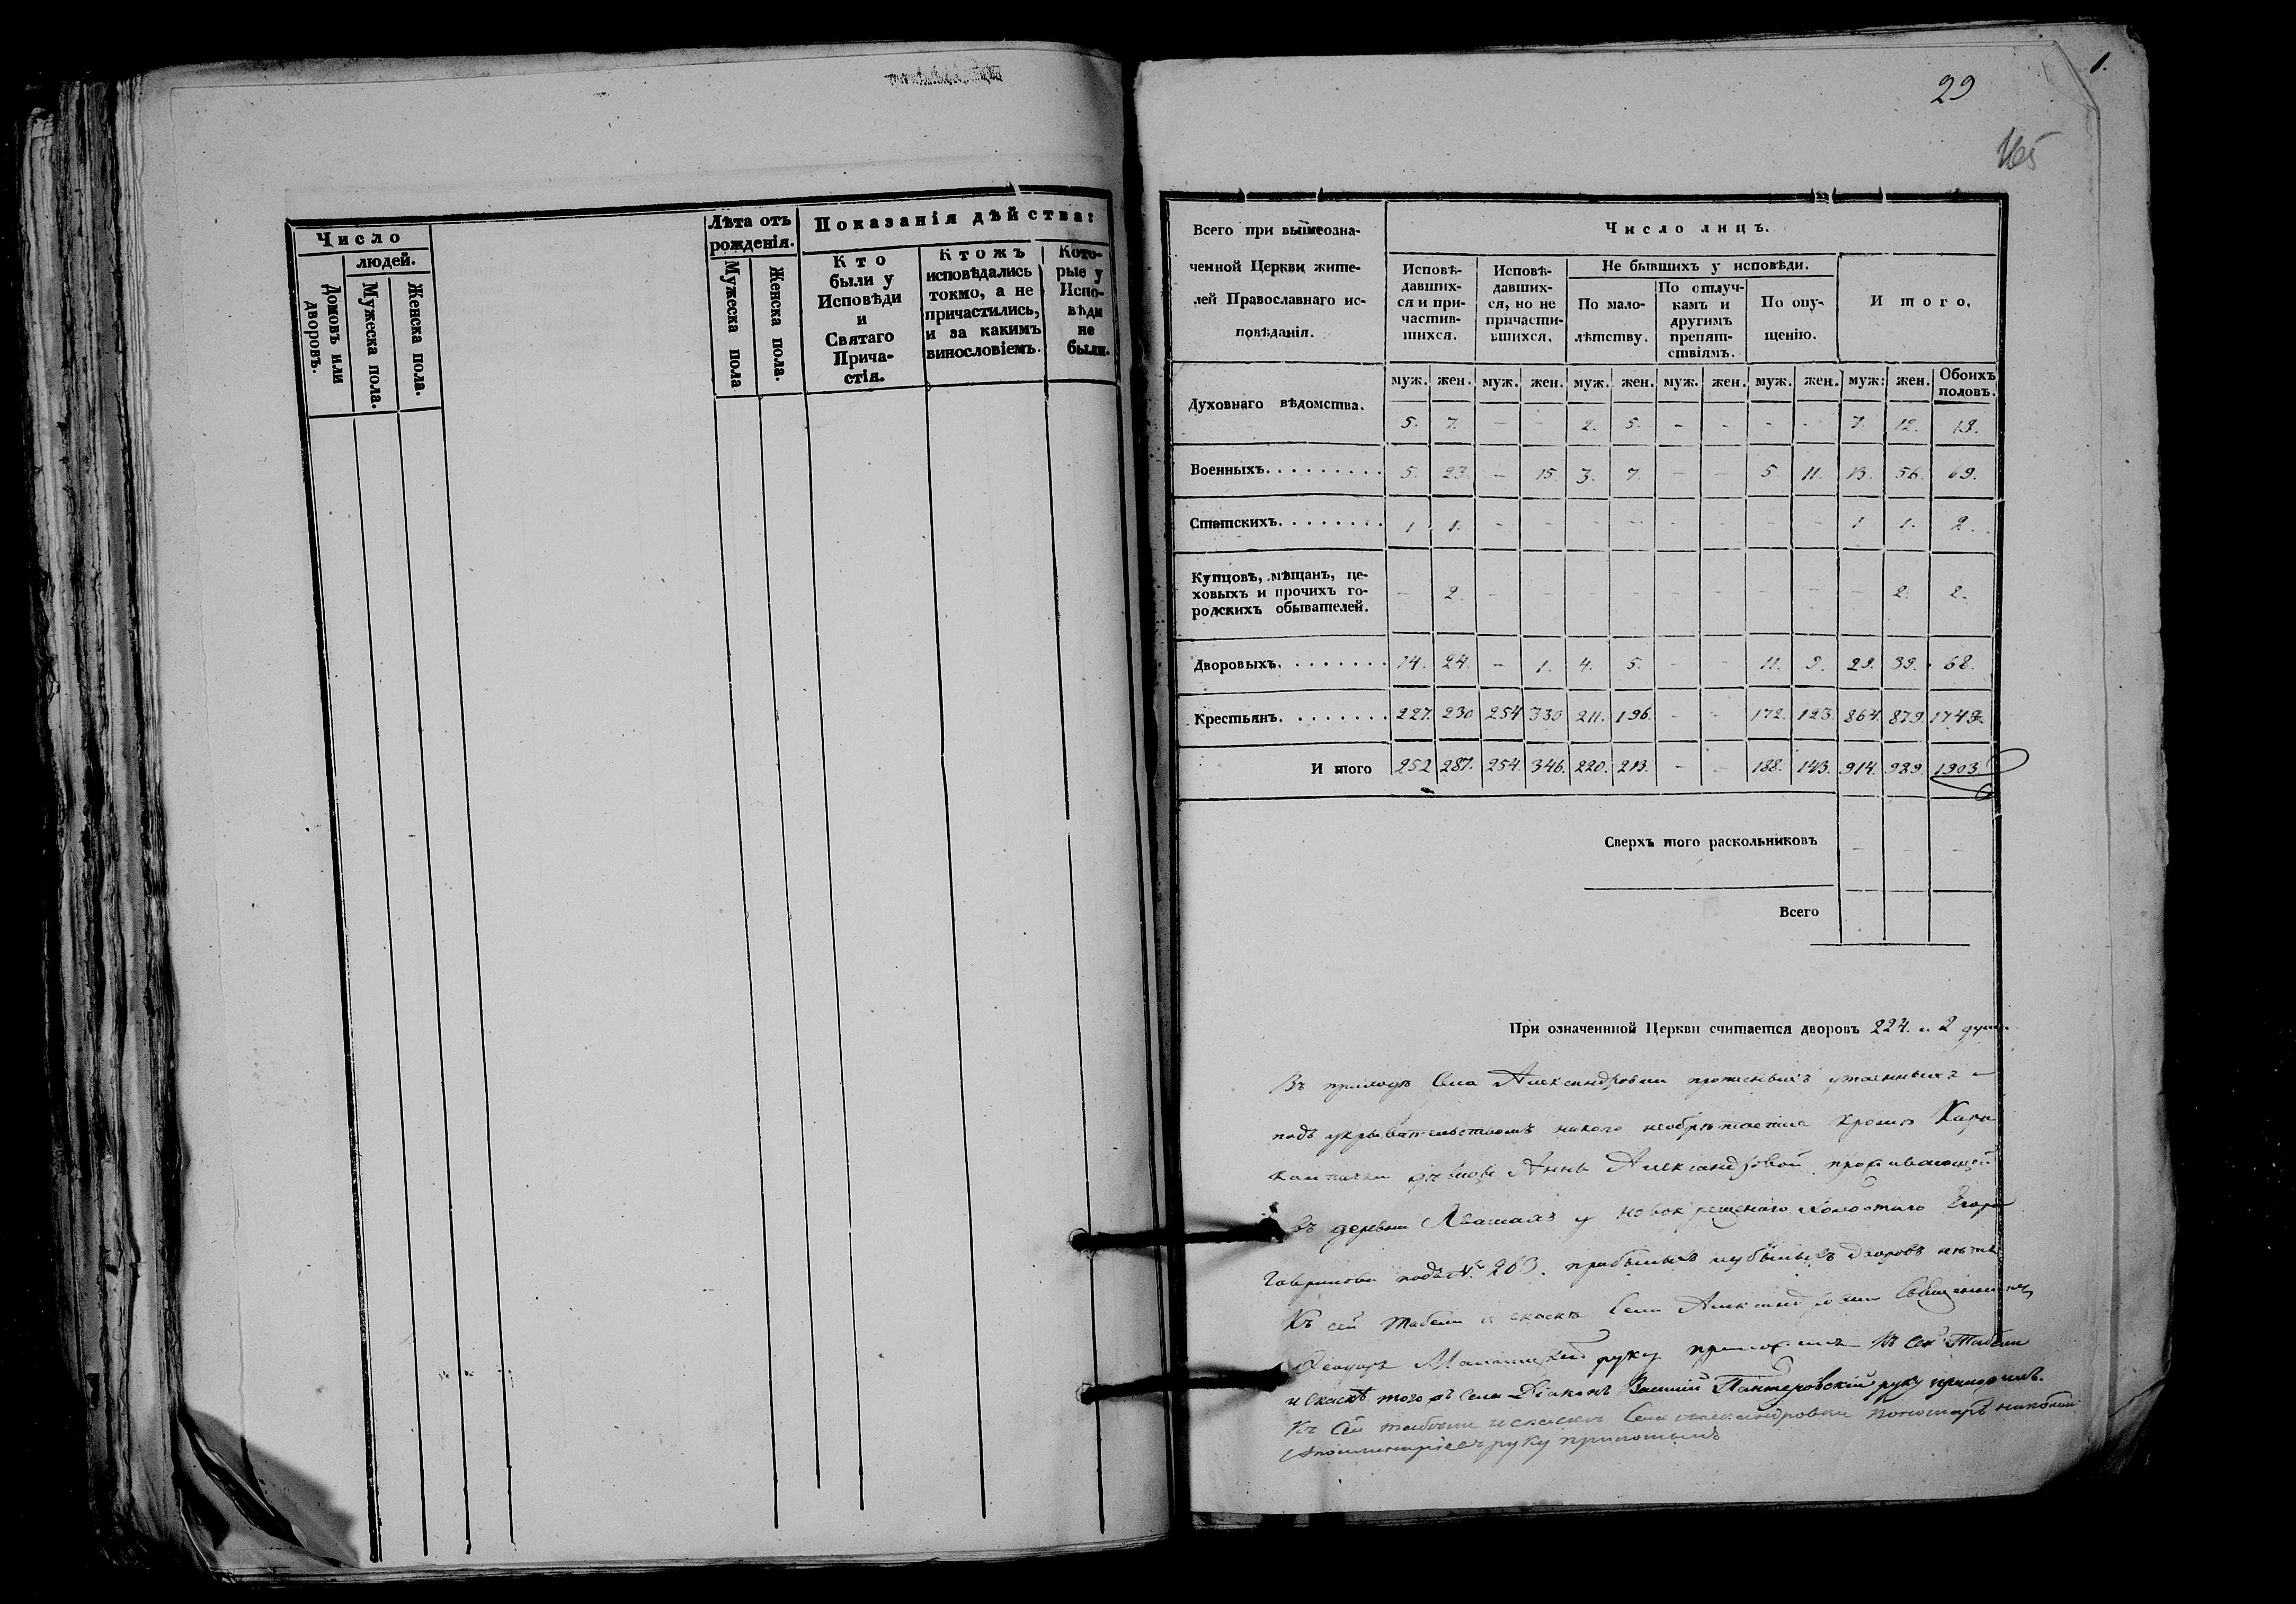 Число
людей.
Домовъ или дворовъ.
Мужеска пола.
Женска пола.
Лѣта отъ рожденія.
Мужеска пола
Женска пола.
Показанія дѣйства:
Кто были у Исповѣди и Святаго Причастія.
Ктожъ исповѣдались токмо, а не причастились, и за какимъ винословіемъ.
Которые у Исповѣди не были.
1.
29
165
Всего при вышеозначенной Церкви жителей Православнаго исповѣданія.
Число лицъ.
Исповѣдавшихся и причастившихся.
Исповѣдавшихся, но не причастившихся.
Не бывшихъ у исповѣди.
По малолѣтству.
По отлучкамъ и другимъ препятствіямъ.
По опущенію.
Итого.
муж. жен. муж. жен. муж. жен. муж. жен. муж. жен. муж: жен. Обоихъ половъ.
Духовнаго вѣдомства. 5. 7. — — 2. 5. - - - - 7. 12. 19.
Военныхъ. 5. 23. — 15. 3. 7. — — 5 11. 13. 56. 69.
Статскихъ. 1 1. - - - - - - - 1 1. 2.
Купцовъ, мѣщанъ, цеховыхъ и прочихъ городскихъ обывателей. — 2. - - - - - - - - — 2. 2.
Дворовыхъ. 14. 24. — 1. 4. 5. - - 11. 9. 29. 39. 68.
Крестьянъ. 227. 230 254 330 211. 196. - - 172. 123. 864. 879. 1743.
Итого 252 287. 254. 346. 220. 213. - - 188. 143. 914. 989. 1903
Сверхъ того раскольниковъ — — —
Всего
При означенной Церкви считается дворовъ 224. и 2 души.
Въ приходѣ Села Александровки прописныхъ утаенныхъ и
подъ укрывательствомъ никого необрѣтается кромѣ
дѣвицы Анны Александровой проживающей
въ деревни у новокрещенаго холостаго Егора
Гаврилова подъ № 203. прибылыхъ и убылыхъ дворовъ нетъ
Къ сей табели и скаскѣ Села Александровки Священникъ
Феодоръ руку приложилъ Къ сей Табели
и скаскѣ тогожъ Села Діаконъ Василій Пантеровскій руку приложилъ.
Къ сей табели и скаскѣ Села Александровки Пономарь
руку приложилъ